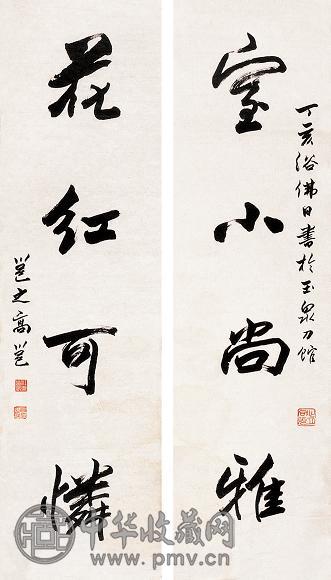 丁亥浴佛日書於玉泉刀館
室小尚雅
花紅可憐
邕之高邕
中华收藏网
www.pmv.cn